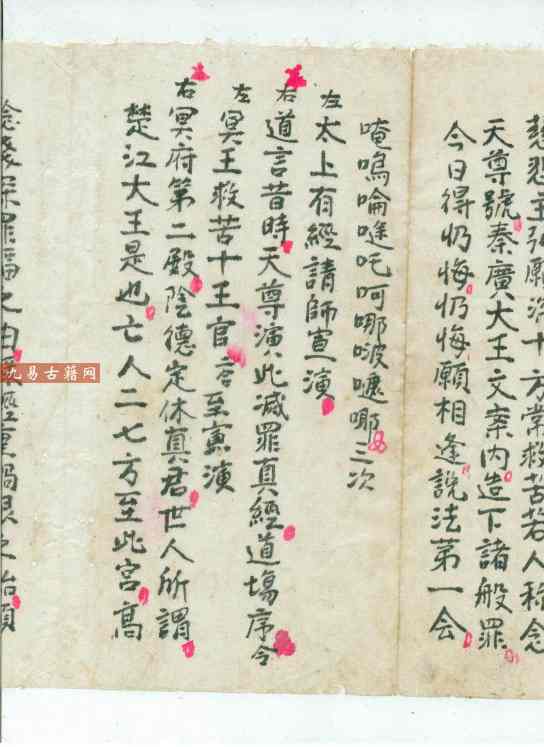 慈悲主弘願洽十方常救苦若人称念
天尊號秦廣大王文案内造下諸般罪
今日得忏悔忏悔願相逢説法第一会
唵嗚唵哒吒呵哪啵嚏哪三次
左太上有經請師宣演
右道言昔時天尊演此减罪真經道塲序令
左冥王救苦十王官 至 演
右冥府第二殿陰德定休真君世人所謂
楚江大王是也亡人二七方至此宫高
罪福之由 重 之 頭
九易古籍网